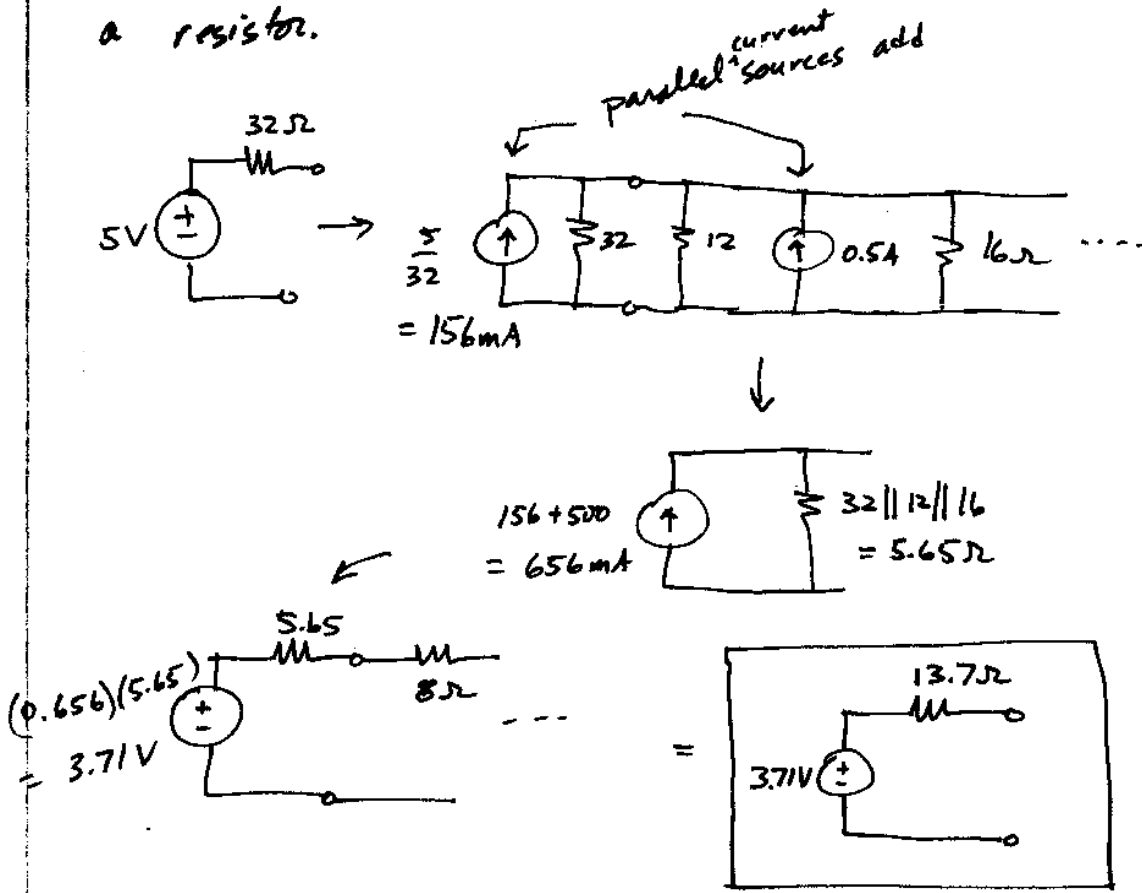 a resistor.
parallel ^current sources add
32Ω
5V
+
-
→
5/32
= 156mA
32
12
0.5A
16Ω
....
↓
156+500
= 656mA
32||12||16
= 5.65Ω
5.65
8Ω
(0.656)(5.65)
= 3.71V
+
-
- - - -
=
13.7Ω
3.71V
+
-